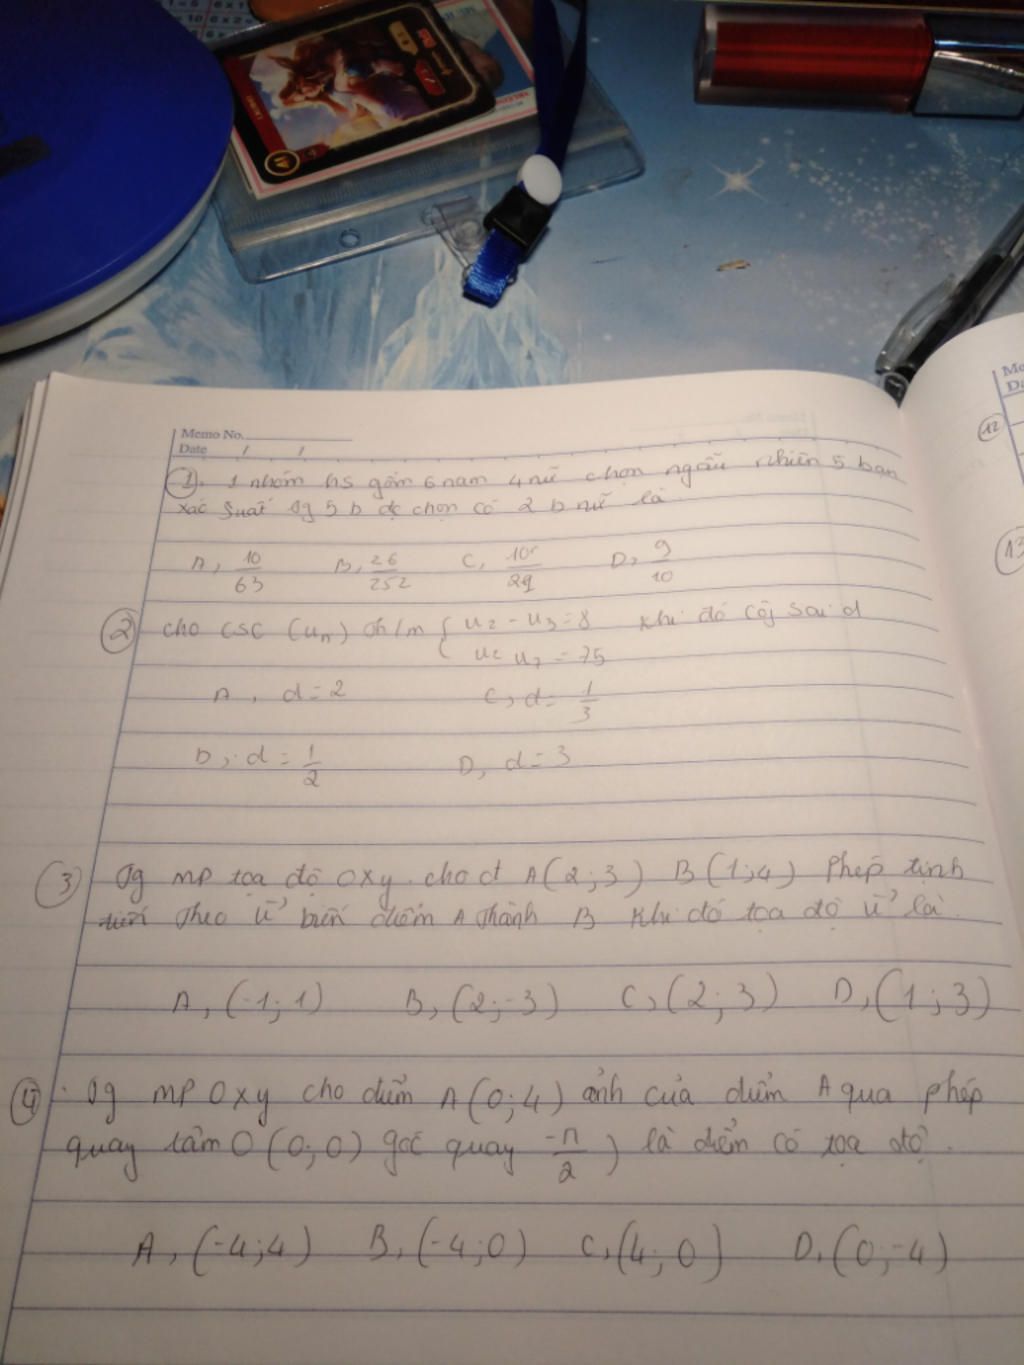 Memo No.
Date / /
①. 1 nhóm hs gồm 6 nam 4 nữ chọn ngẫu nhiên 5 bạn
xác suất 5 b đc chọn có 2 b nữ là
A, 10/63 B, 26/252 C, 105/29 D, 9/10
② cho CSC (un) th/m { u2 - u3 = 8 khi đó côj sai d
u2 u7 = 75
A, d = 2 C, d = 1/3
b, d = 1/2 D, d = 3
③ mp tọa độ Oxy. cho đ A(2;3) B(1;4) Phép tịnh
tiến theo u⃗ biến điểm A thành B khi đó tọa độ u⃗ là.
A, (-1;1) B, (2;-3) C, (2;3) D, (1;3)
④ mp Oxy cho điểm A(0;4) ảnh của điểm A qua phép
quay tâm O(0;0) góc quay -π/2) là điểm có tọa độ.
A, (-4;4) B, (-4;0) C, (4;0) D, (0;-4)
12
13